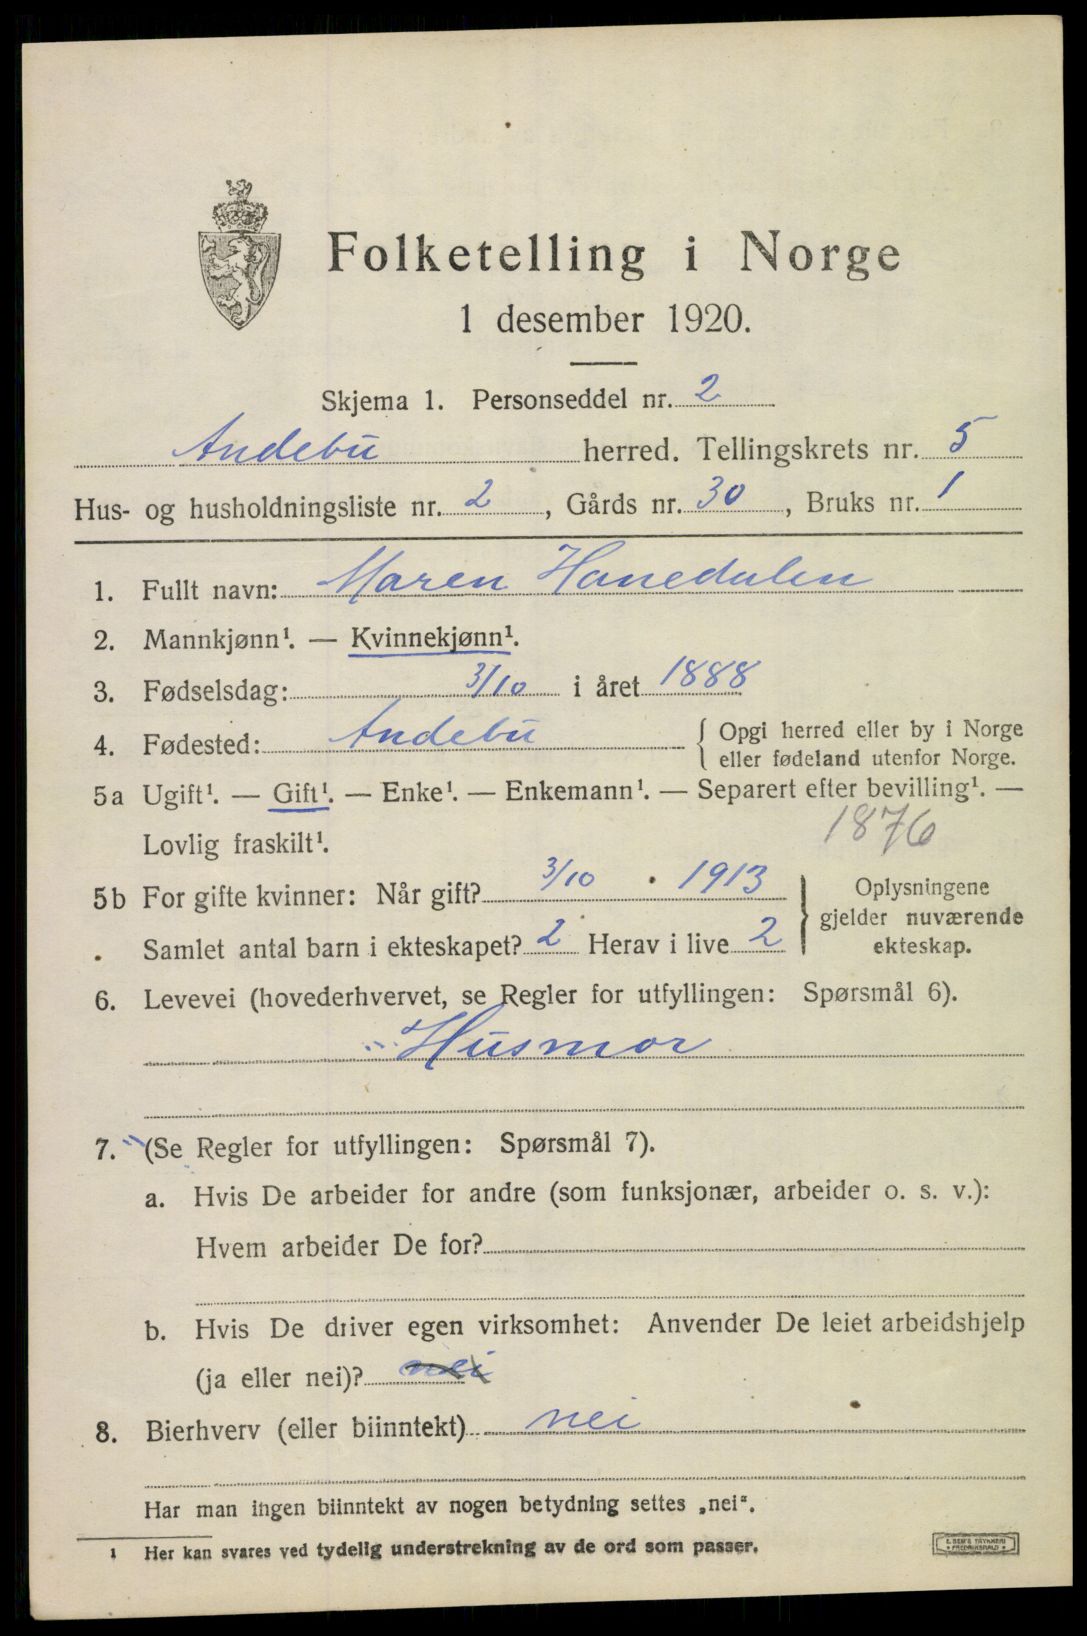 Folketelling i Norge
1 desember 1920.
Skjema 1. Personseddel nr. 2
Andebu herred. Tellingskrets nr. 5
Hus- og husholdningsliste nr. 2, Gårds nr. 30, Bruks nr. 1
1. Fullt navn: Maren Hanedalen
2. Mannkjønn¹. — Kvinnekjønn¹.
3. Fødselsdag: 3/10 i året 1888
4. Fødested: Andebu { Opgi herred eller by i Norge
eller fødeland utenfor Norge.
5a Ugift¹. — Gift¹. — Enke¹. — Enkemann¹. — Separert efter bevilling¹. —
Lovlig fraskilt¹. 1876
5b For gifte kvinner: Når gift? 3/10 1913
Samlet antal barn i ekteskapet? 2 Herav i live 2
} Oplysningene
gjelder nuværende
ekteskap.
6. Levevei (hovederhvervet, se Regler for utfyllingen: Spørsmål 6).
Husmor
7. (Se Regler for utfyllingen: Spørsmål 7).
a. Hvis De arbeider for andre (som funksjonær, arbeider o. s. v.):
Hvem arbeider De for?
b. Hvis De driver egen virksomhet: Anvender De leiet arbeidshjelp
(ja eller nei)? nei
8. Bierhverv (eller biinntekt) nei
Har man ingen biinntekt av nogen betydning settes „nei".
¹ Her kan svares ved tydelig understrekning av de ord som passer.
E. SEM'S TRYKKERI
FREDRIKSHALD